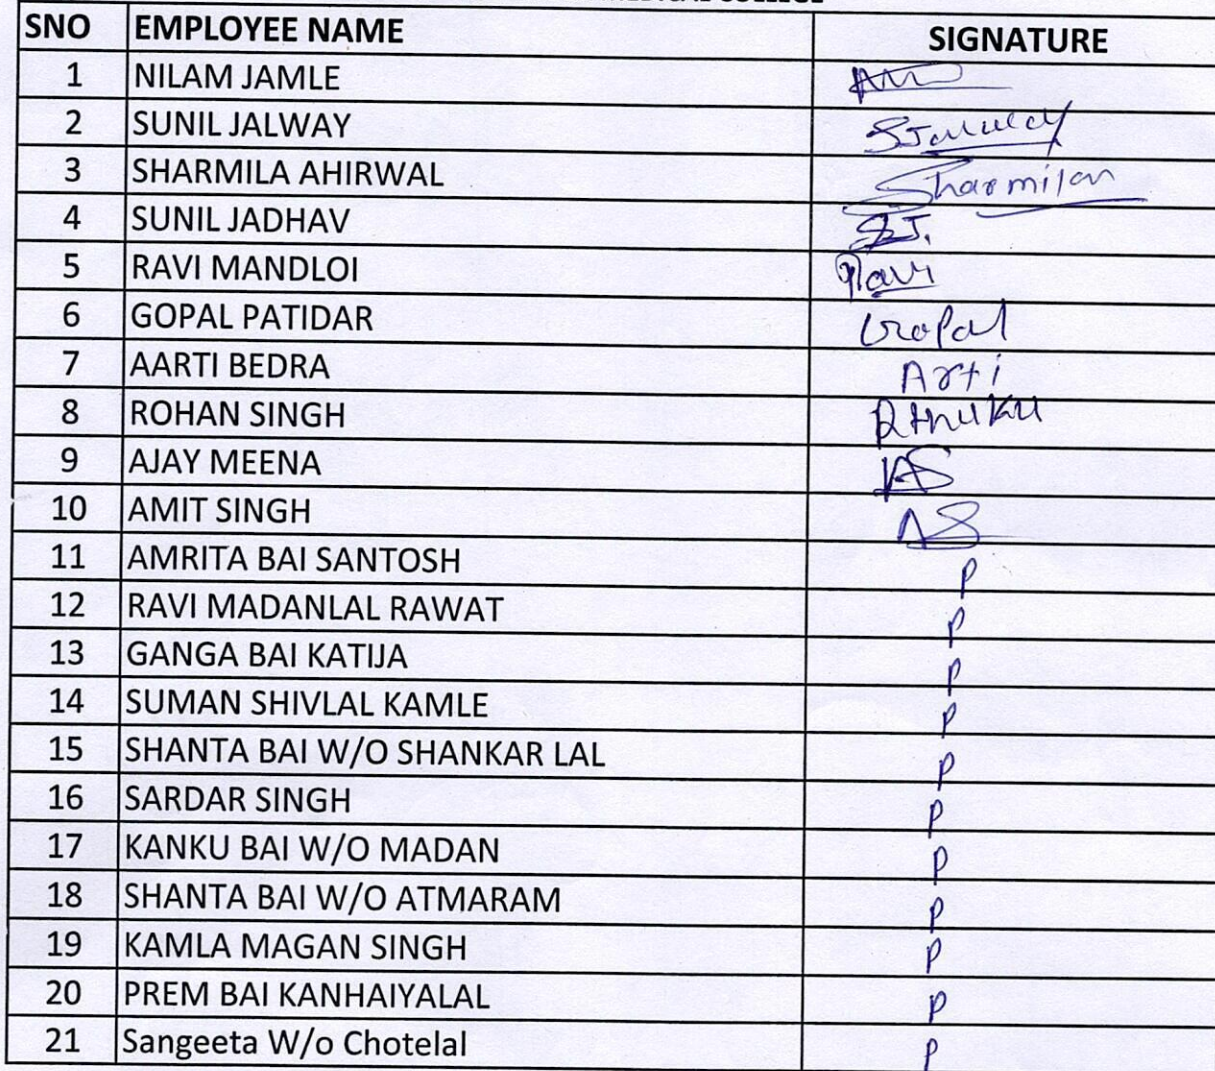 SNO EMPLOYEE NAME SIGNATURE
1 NILAM JAMLE
2 SUNIL JALWAY SJalway
3 SHARMILA AHIRWAL Sharmilan
4 SUNIL JADHAV SJ.
5 RAVI MANDLOI Ravi
6 GOPAL PATIDAR Gopal
7 AARTI BEDRA Arti
8 ROHAN SINGH
9 AJAY MEENA
10 AMIT SINGH AS
11 AMRITA BAI SANTOSH P
12 RAVI MADANLAL RAWAT P
13 GANGA BAI KATIJA P
14 SUMAN SHIVLAL KAMLE P
15 SHANTA BAI W/O SHANKAR LAL P
16 SARDAR SINGH P
17 KANKU BAI W/O MADAN P
18 SHANTA BAI W/O ATMARAM P
19 KAMLA MAGAN SINGH P
20 PREM BAI KANHAIYALAL P
21 Sangeeta W/o Chotelal P